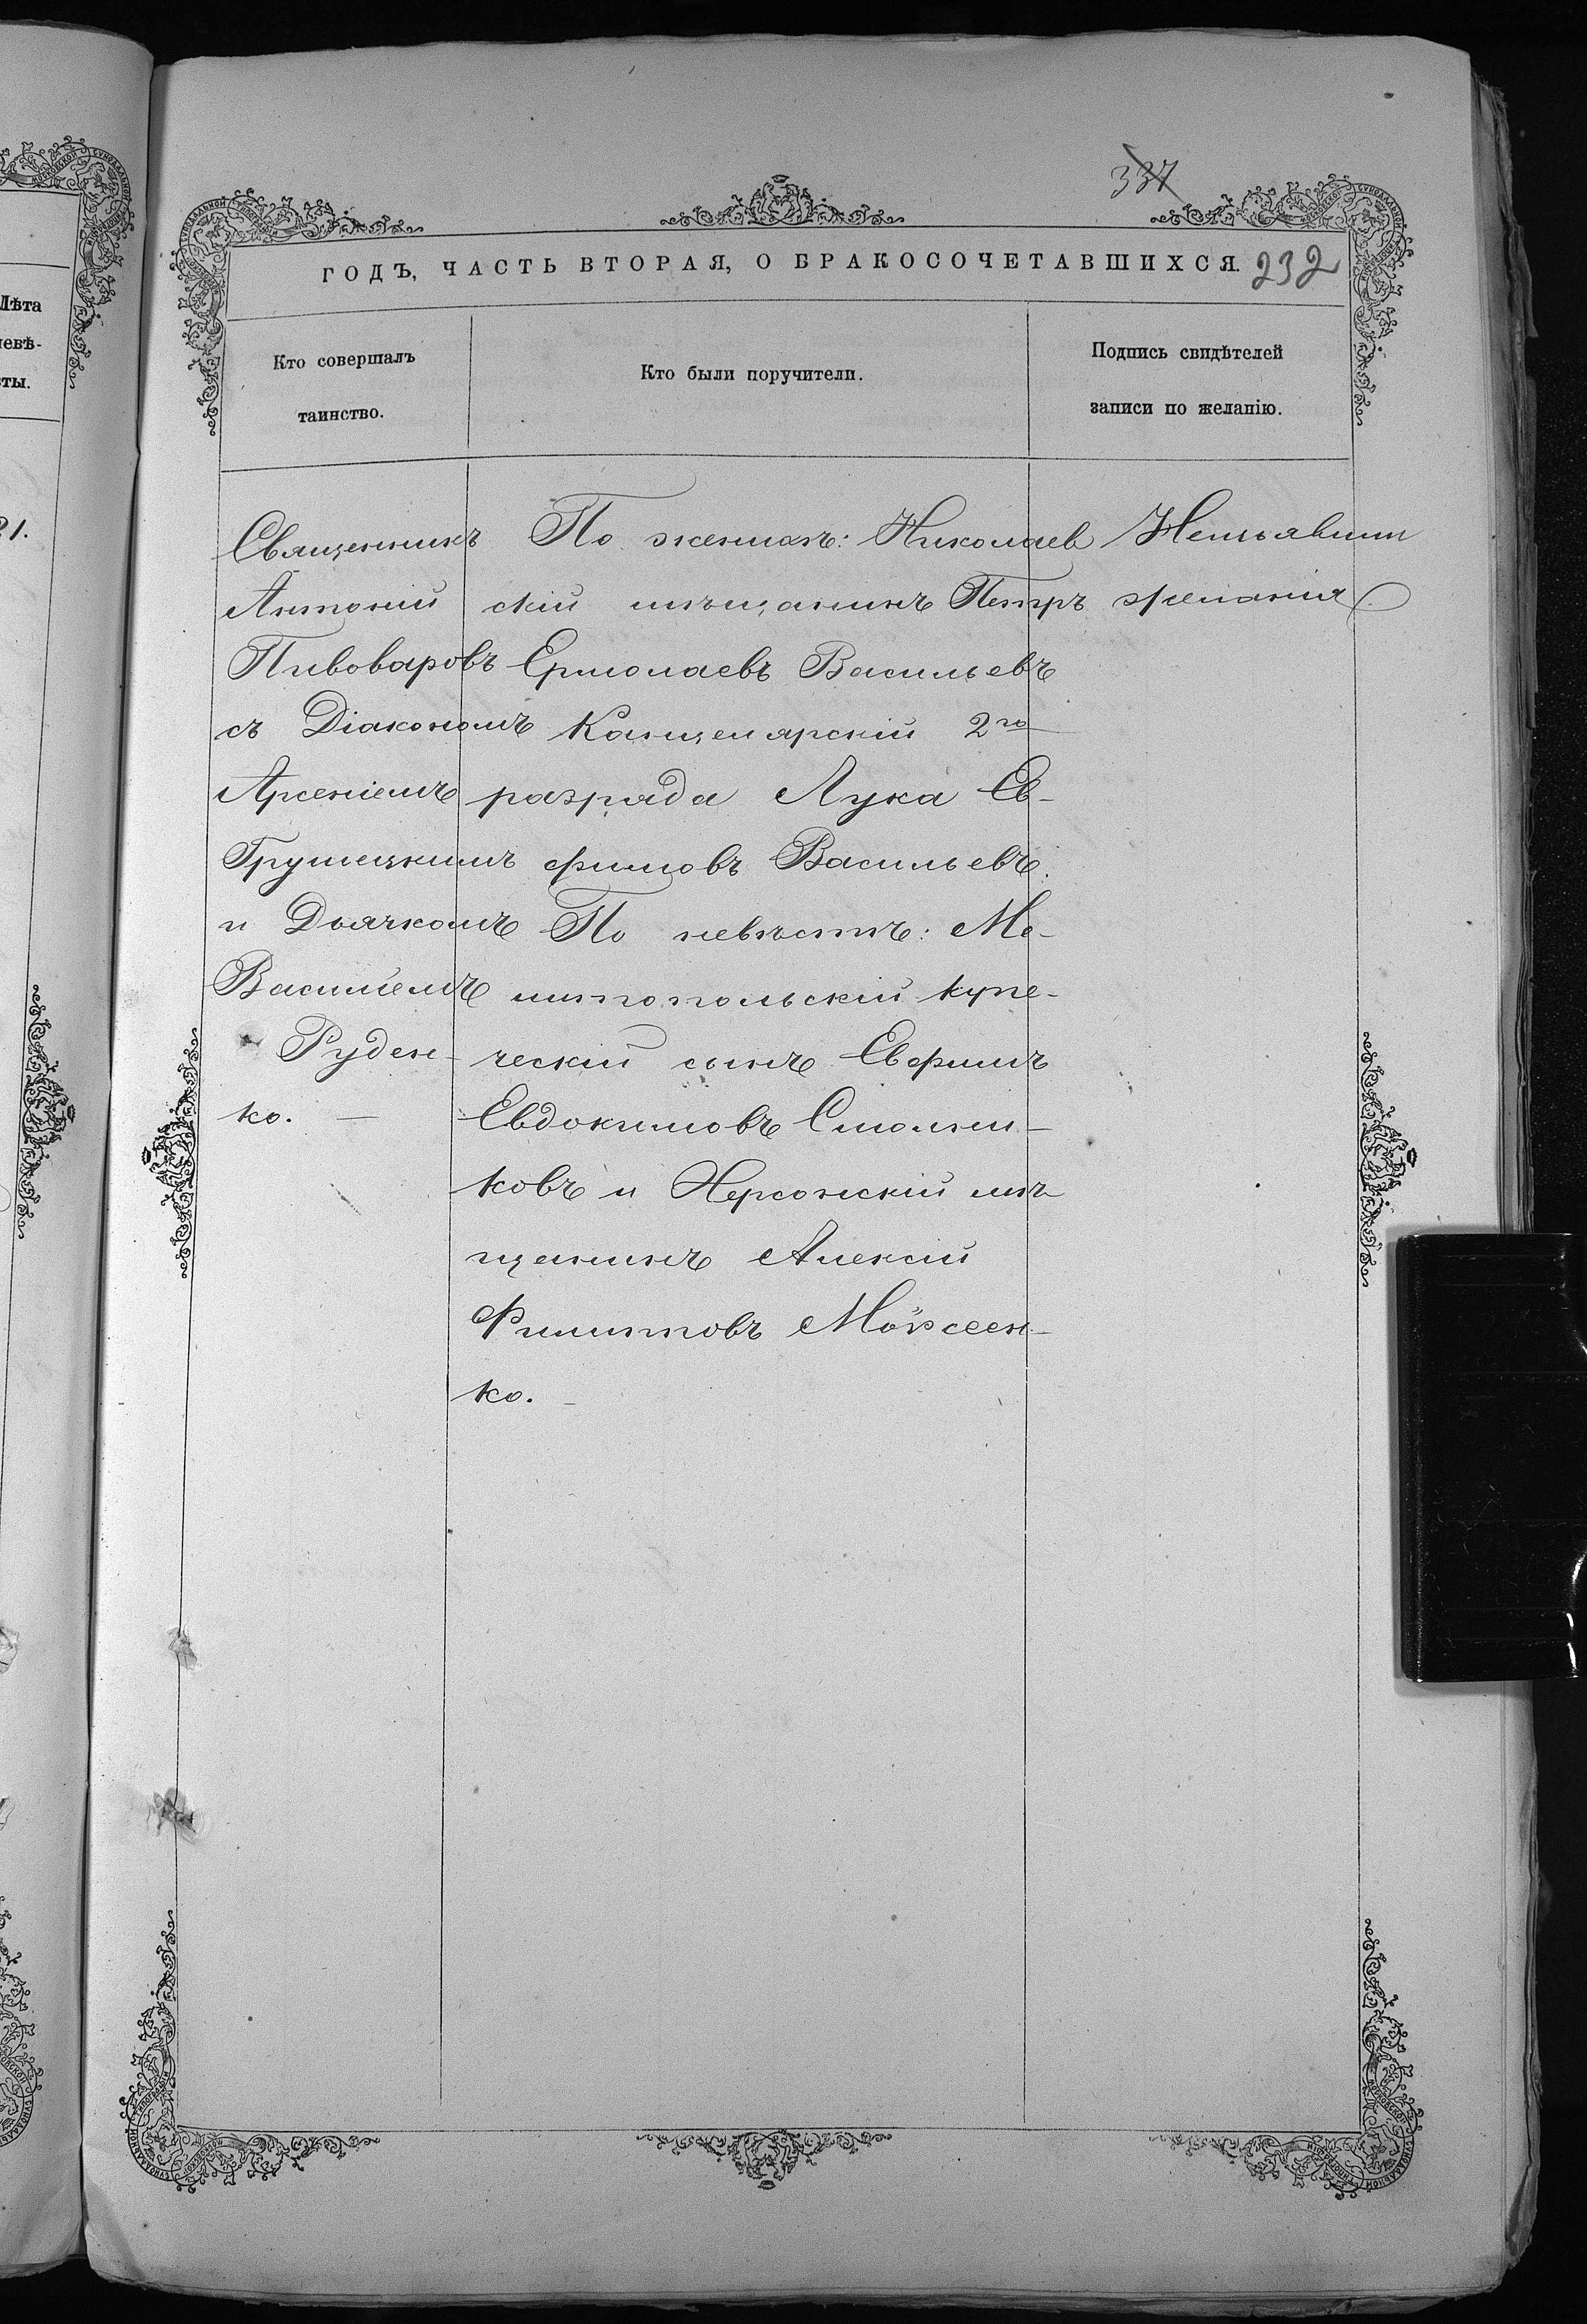 337
ГОДЪ, ЧАСТЬ ВТОРАЯ, О БРАКОСОЧЕТАВШИХСЯ. 232
Лѣта
невѣ-
сты.
21.
Кто совершалъ
таинство.
Кто были поручители.
Подпись свидѣтелей
записи по желанію.
Священникъ
Антоній
Пивоваровъ
съ Діакономъ
Арсеніемъ
Грушецкимъ
и Дьячкомъ
Василіемъ
Руден-
ко. —
По женихѣ: Николаев
скій мѣщанинъ Петръ
Ермолаевъ Васильевъ
Канцелярскій 2го
разряда Лука Ев-
фимовъ Васильевъ.
По невѣстѣ: Ме-
литопольскій купе-
ческій сынъ Ефимъ
Евдокимовъ
ковъ и Херсонскій мѣ
щанинъ Алексій
Филиповъ Моѵсеен-
ко. —
Неизъявили
желанія